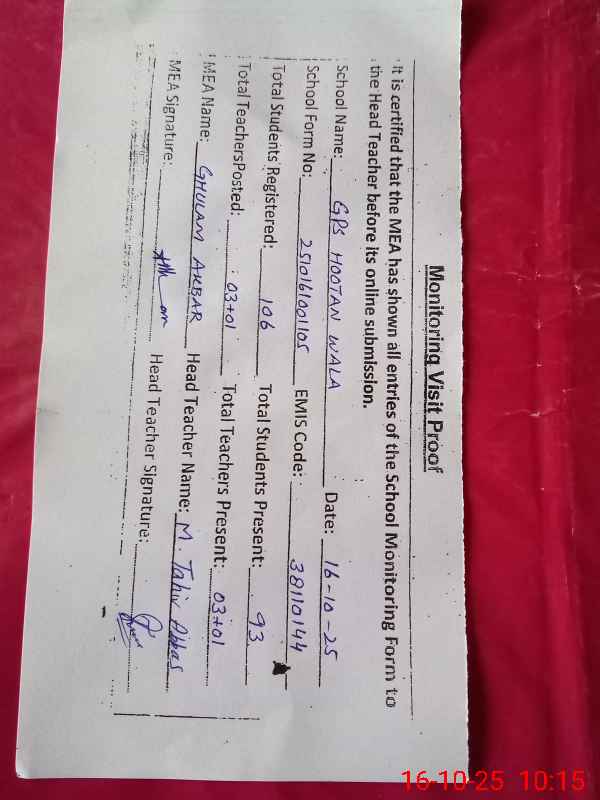 Monitoring Visit Proof
It is certified that the MEA has shown all entries of the School Monitoring Form to
the Head Teacher before its online submission.
School Name: GPS HOOTAN WALA Date: 16-10-25
School Form No: 251016001105 EMIS Code: 38110144
Total Students Registered: 106 Total Students Present: 93
Total TeachersPosted: 03+01 Total Teachers Present: 03+01
MEA Name: GHULAM AKBAR Head Teacher Name: M. Tahir Abbas
MEA Signature: Head Teacher Signature:
16-10-25 10:15